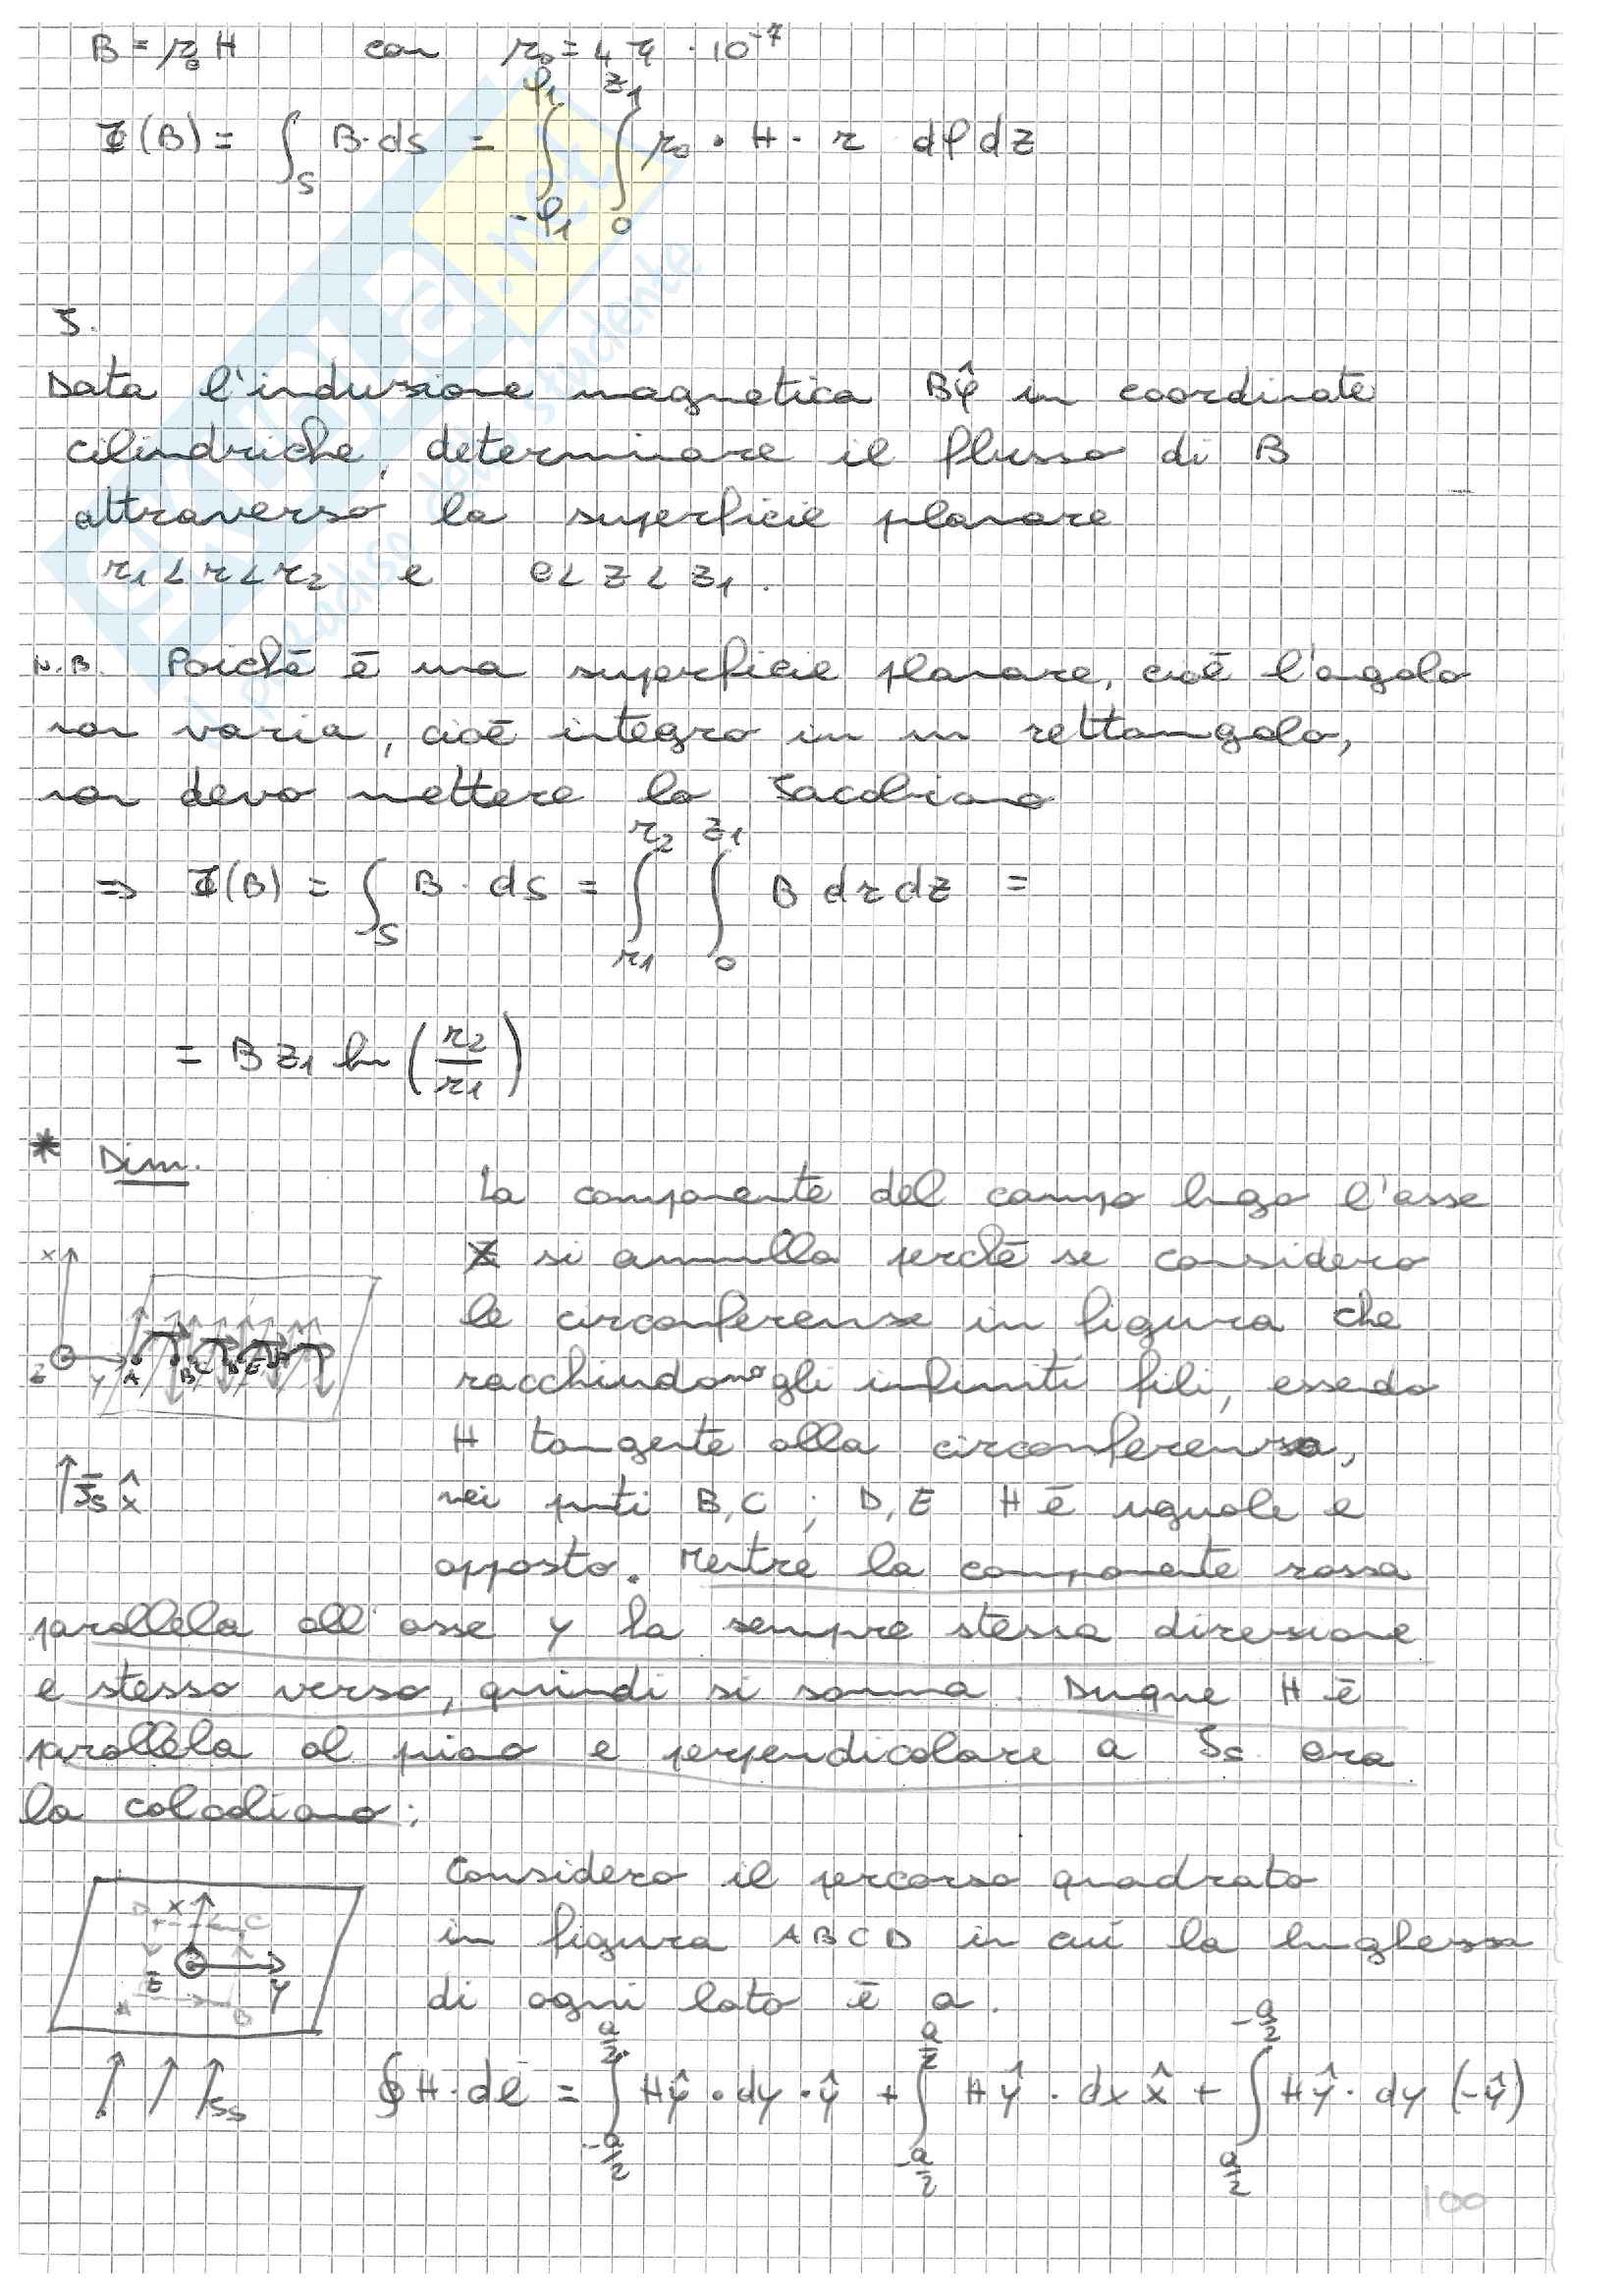 B = μ₀ H con μ₀ = 4π · 10⁻⁷
Φ(B) = ∫_S B · ds = ∫_{-φ₁}^{φ₁} ∫_0^{z₁} μ₀ · H · r dφ dz
5.
Data l'induzione magnetica Bφ̂ in coordinate
cilindriche, determinare il flusso di B
attraverso la superficie planare
r₁ < r < r₂ e 0 < z < z₁.
N.B. Poiché è una superficie planare, cioè l'angolo
non varia, cioè integro in un rettangolo,
non devo mettere lo Jacobiano
⇒ Φ(B) = ∫_S B · ds = ∫_{r₁}^{r₂} ∫_0^{z₁} B dr dz =
= B z₁ ln (r₂/r₁)
* Dim.
La componente del campo lungo l'asse
si annulla perché se considero
le circonferenze in figura che
racchiudono gli infiniti fili, essendo
H tangente alla circonferenza,
nei punti B, C ; D, E H è uguale e
opposto. Mentre la componente rossa
parallela all'asse y ha sempre stessa direzione
e stesso verso, quindi si somma. Dunque H è
parallela al piano e perpendicolare a Js ora
la calcoliamo:
x
z y A B C D E
J̄s x̂
Considero il percorso quadrato
in figura ABCD in cui la lunghezza
di ogni lato è a.
D x C
z y
A B
Js
∮ H · dl = ∫_{-a/2}^{a/2} Hŷ · dy · ŷ + ∫_{-a/2}^{a/2} Hŷ · dx x̂ + ∫_{a/2}^{-a/2} Hŷ · dy (-ŷ)
100